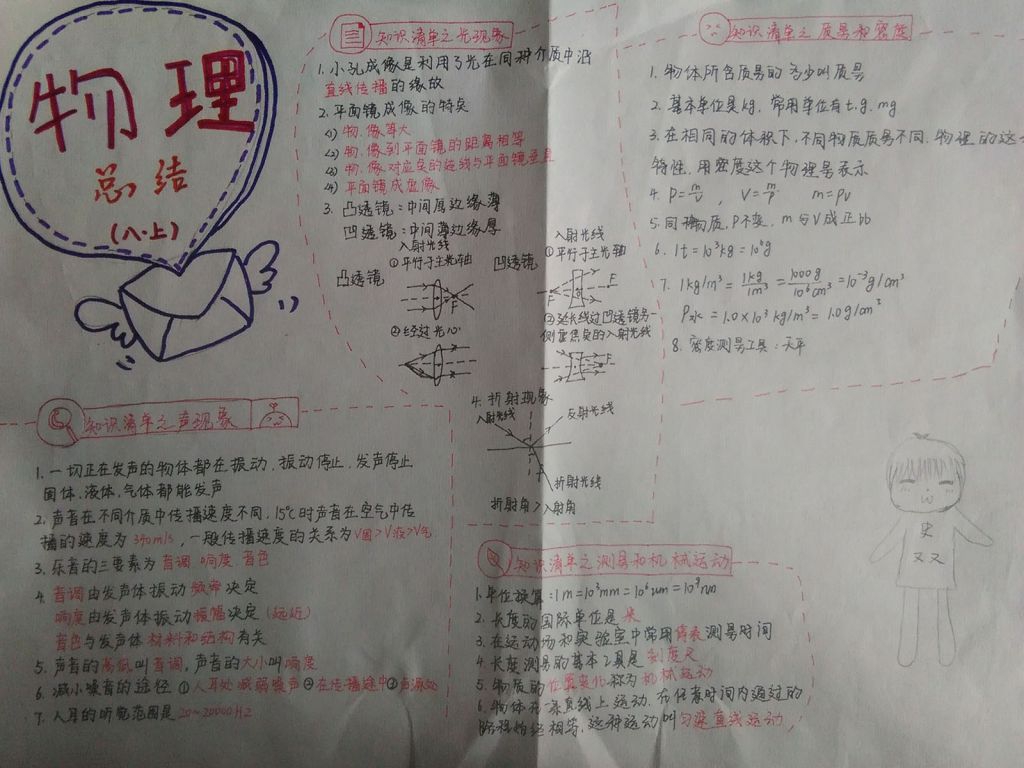 物理
总结
(八·上)
知识清单之光现象
1. 小孔成像是利用了光在同种介质中沿
直线传播的缘故
2. 平面镜成像的特点
(1) 物、像等大
(2) 物、像到平面镜的距离相等
(3) 物、像对应点的连线与平面镜垂直
(4) 平面镜成虚像
3. 凸透镜：中间厚边缘薄
凹透镜：中间薄边缘厚
入射光线
①平行于主光轴
凸透镜
F
②经过光心
凹透镜
入射光线
①平行于主光轴
F
②延长线过凹透镜另一
侧虚焦点的入射光线
4. 折射现象
入射光线
反射光线
折射光线
折射角＞入射角
知识清单之质量和密度
1. 物体所含质量的多少叫质量
2. 基本单位是kg，常用单位有t.g.mg
3. 在相同的体积下，不同物质质量不同，物理的这一
特性，用密度这个物理量表示
4. ρ=m/v ， V=m/ρ m=ρv
5. 同种物质，ρ不变，m与V成正比
6. 1t=10³kg=10⁶g
7. 1kg/m³=1kg/1m³=1000g/10⁶cm³=10⁻³g/cm³
ρ水=1.0×10³kg/m³=1.0g/cm³
8. 密度测量工具：天平
知识清单之声现象
1. 一切正在发声的物体都在振动，振动停止，发声停止
固体、液体、气体都能发声
2. 声音在不同介质中传播速度不同，15℃时声音在空气中传
播的速度为340m/s，一般传播速度的关系为V固>V液>V气
3. 乐音的三要素为音调、响度、音色
4. 音调由发声体振动频率决定
响度由发声体振动振幅决定（远近）
音色与发声体材料和结构有关
5. 声音的高低叫音调，声音的大小叫响度
6. 减小噪音的途径 ①人耳处减弱噪声②在传播途中③声源处
7. 人耳的听觉范围是20~20000HZ
知识清单之测量和机械运动
1. 单位换算：1m=10³mm=10⁶um=10⁹nm
2. 长度的国际单位是米
3. 在运动场和实验室中常用停表测量时间
4. 长度测量的基本工具是刻度尺
5. 物质的位置变化称为机械运动
6. 物体在一条直线上运动，在任意时间内通过的
路程始终相等，这种运动叫匀速直线运动
史
又又